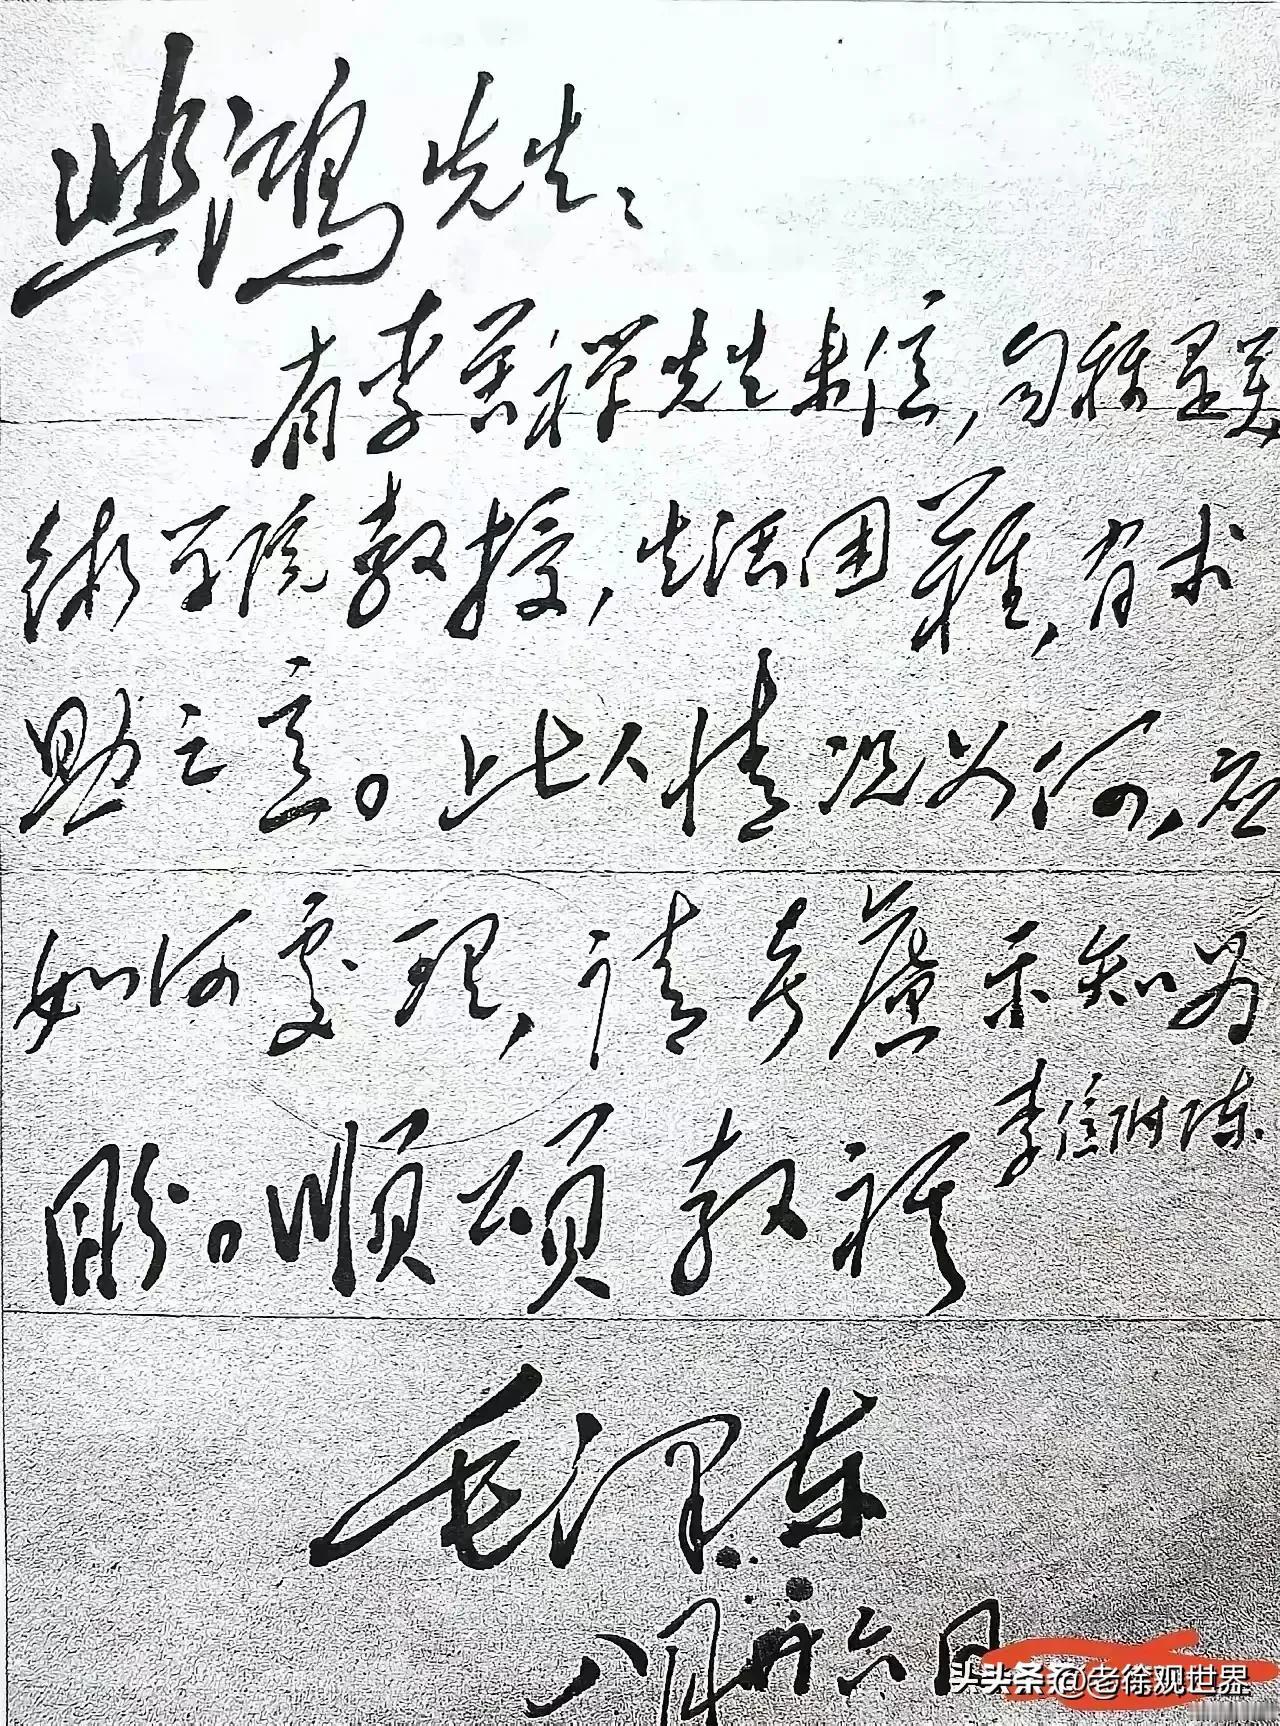 悲鸿先生：
有李苦禅先生来信，自称是美
术学院教授，生活困難，有求
助之意。此人情况如何，应
如何處理，请考慮示知为
盼。顺颂教祺
李信附陈
毛泽东
八月廿六日
头头条条@老徐观世界